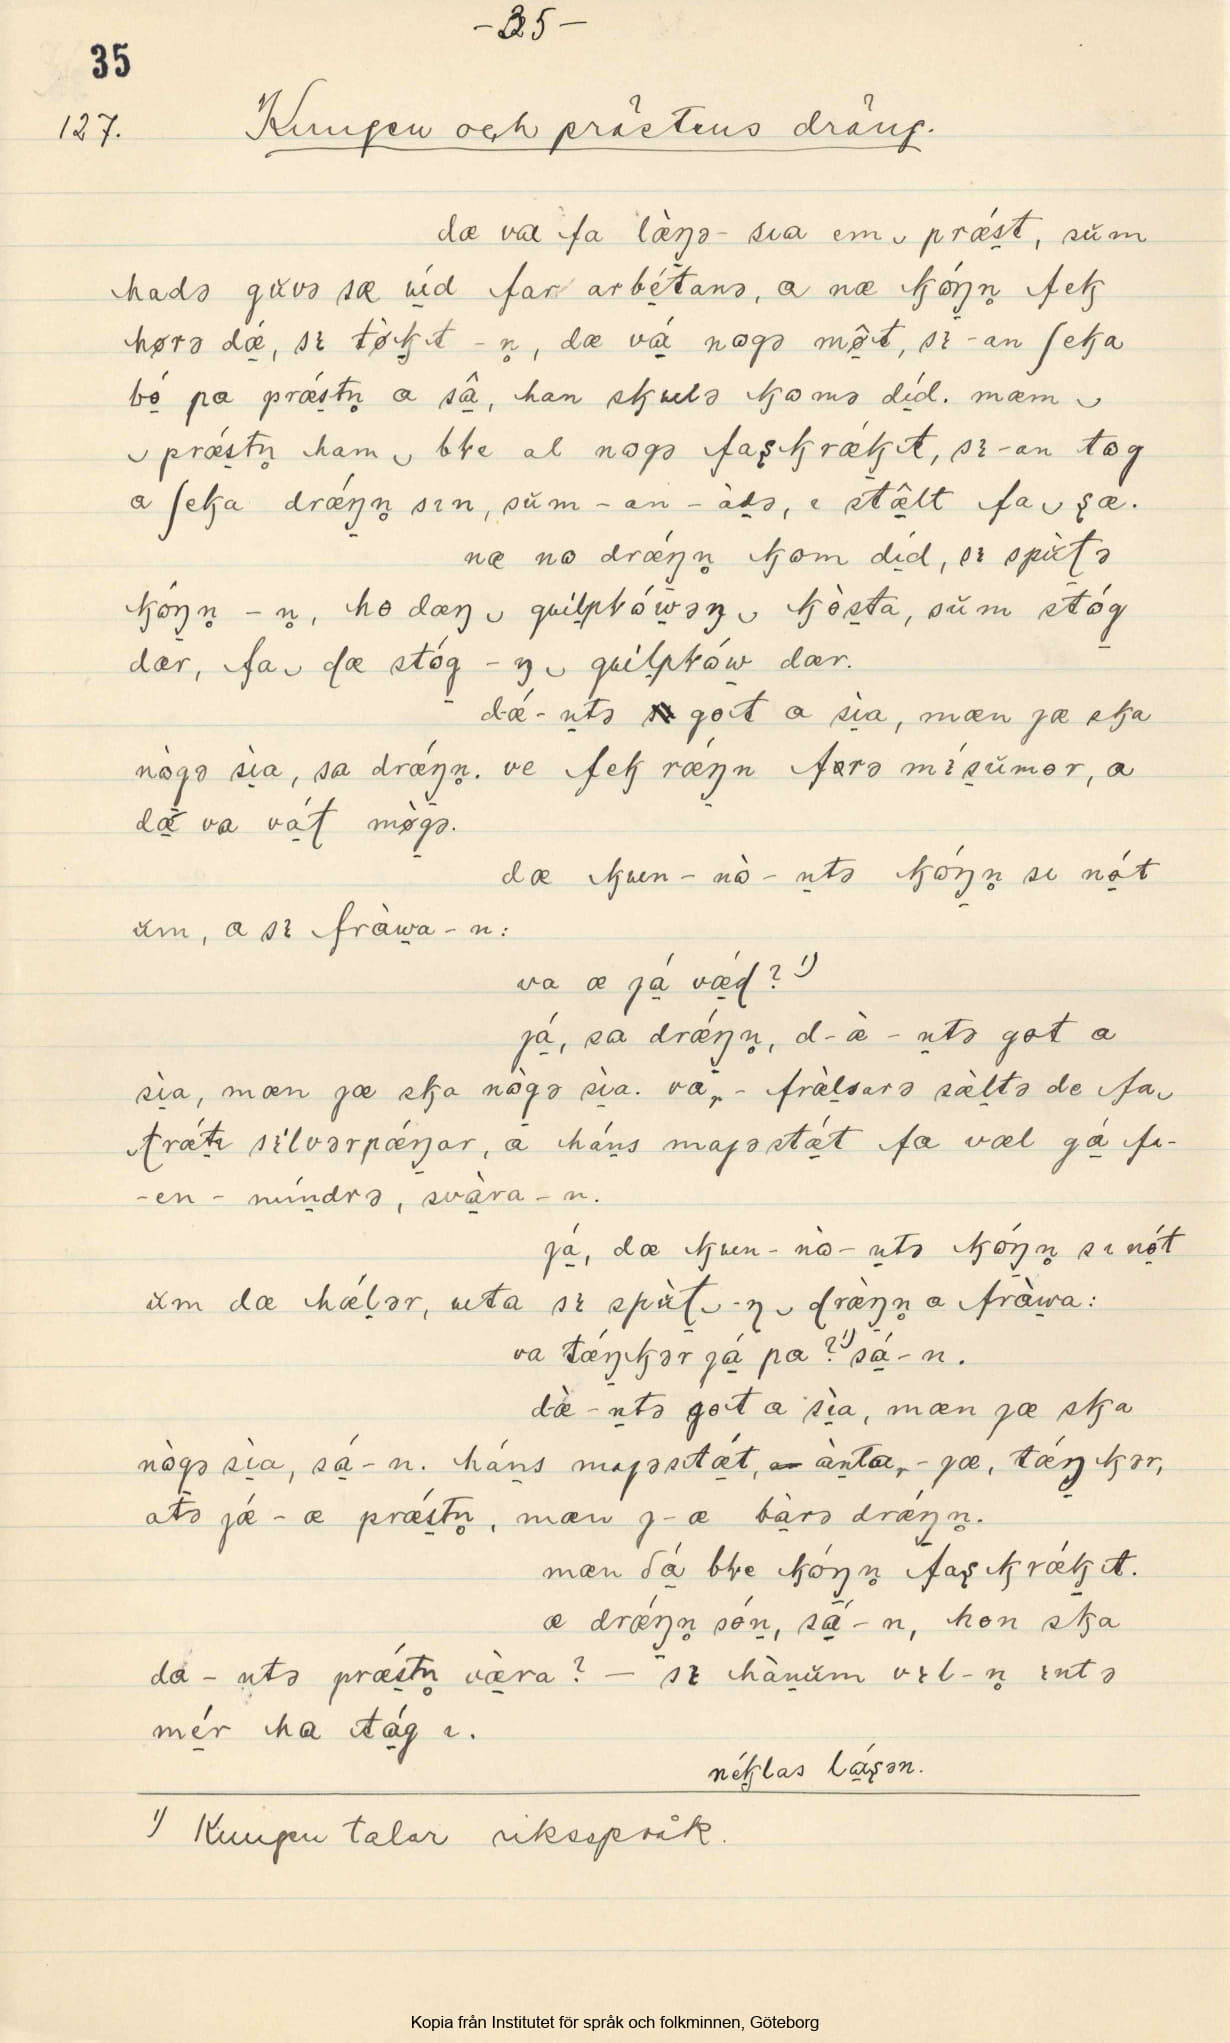 -35-
35
127. Kungen och prästens dräng.
dæ va fa làŋə-sıa em‿prǽst, sŭm
hadə gŭvə sæ ııíd far arbétanə, a næ kóŋn̥ fek
hørə dǽ, sɛ tø̀kt-n̥, dæ vá nɷgə mø̂t, sɛ-an ʃeka
bó pa prǽstn̥ a sâ, han skɯlə kɷmə díd. mæm‿
‿prǽstn̥ ham‿ble al nɷgə faʂkrǽkt, sɛ-an tɷg
a ʃeka drǽŋn̥ sın, sŭm-an-àdə, ı stæ̂lt fa‿ʂæ.
næ nɷ drǽŋn̥ kɷm díd, sɛ spŭ̀ʈə
kóŋn̥-n̥, ho dæŋ‿gɯílplówəŋ‿kòsta, sŭm stóg
dær, fa‿ɖæ stóg-ŋ‿gɯílplów dær.
dǽ-ntə got a sìa, mæn jæ ska
nɷ̀gə sìa, sa drǽŋn̥. ve fek rǽŋn førə mísŭmər, a
dǽ va váʈ mø̀gə.
dæ kɯn-nɷ̀-ntə kóŋn̥ sı nǿt
ŭm, a sɛ fràwa-n:
va æ já vǽɖ? ¹)
já, sa drǽŋn̥, d-æ̀-ntə got a
sìa, mæn jæ ska nɷ̀gə sìa. var-fràlsarə sæ̀ltə de fa‿
ʈrǽtı sílvərpǽŋar, a háns majəstǽt fa væl gá fı-
-en-míndrə, svàra-n.
já, dæ kɯn-nɷ̀-ntə kóŋn̥ sı nǿt
ŭm dæ hǽlər, ɯta sɛ spŭ̀ʈ‿-ŋ‿ɖræ̀ŋn̥ a fràwa:
va tǽŋkər já pa? ¹) sá-n.
dæ̀-ntə got a sìa, mæn jæ ska
nɷ̀gə sìa, sá-n. háns majəstǽt, àntar-jæ, tǽŋkər,
atə jǽ-æ prǽstn̥, mæn j-æ bàrə drǽŋn̥.
mæn dá ble kóŋn̥ faʂkrǽkt.
æ drǽŋn̥ són, sǽ-n, hon ska
da-ntə prǽstn̥ væ̀ra? — sɛ hànŭm vɛl-n̥ ɛntə
mér ha tág ı.
néklas láʂən.
¹) Kungen talar riksspråk.
Kopia från Institutet för språk och folkminnen, Göteborg